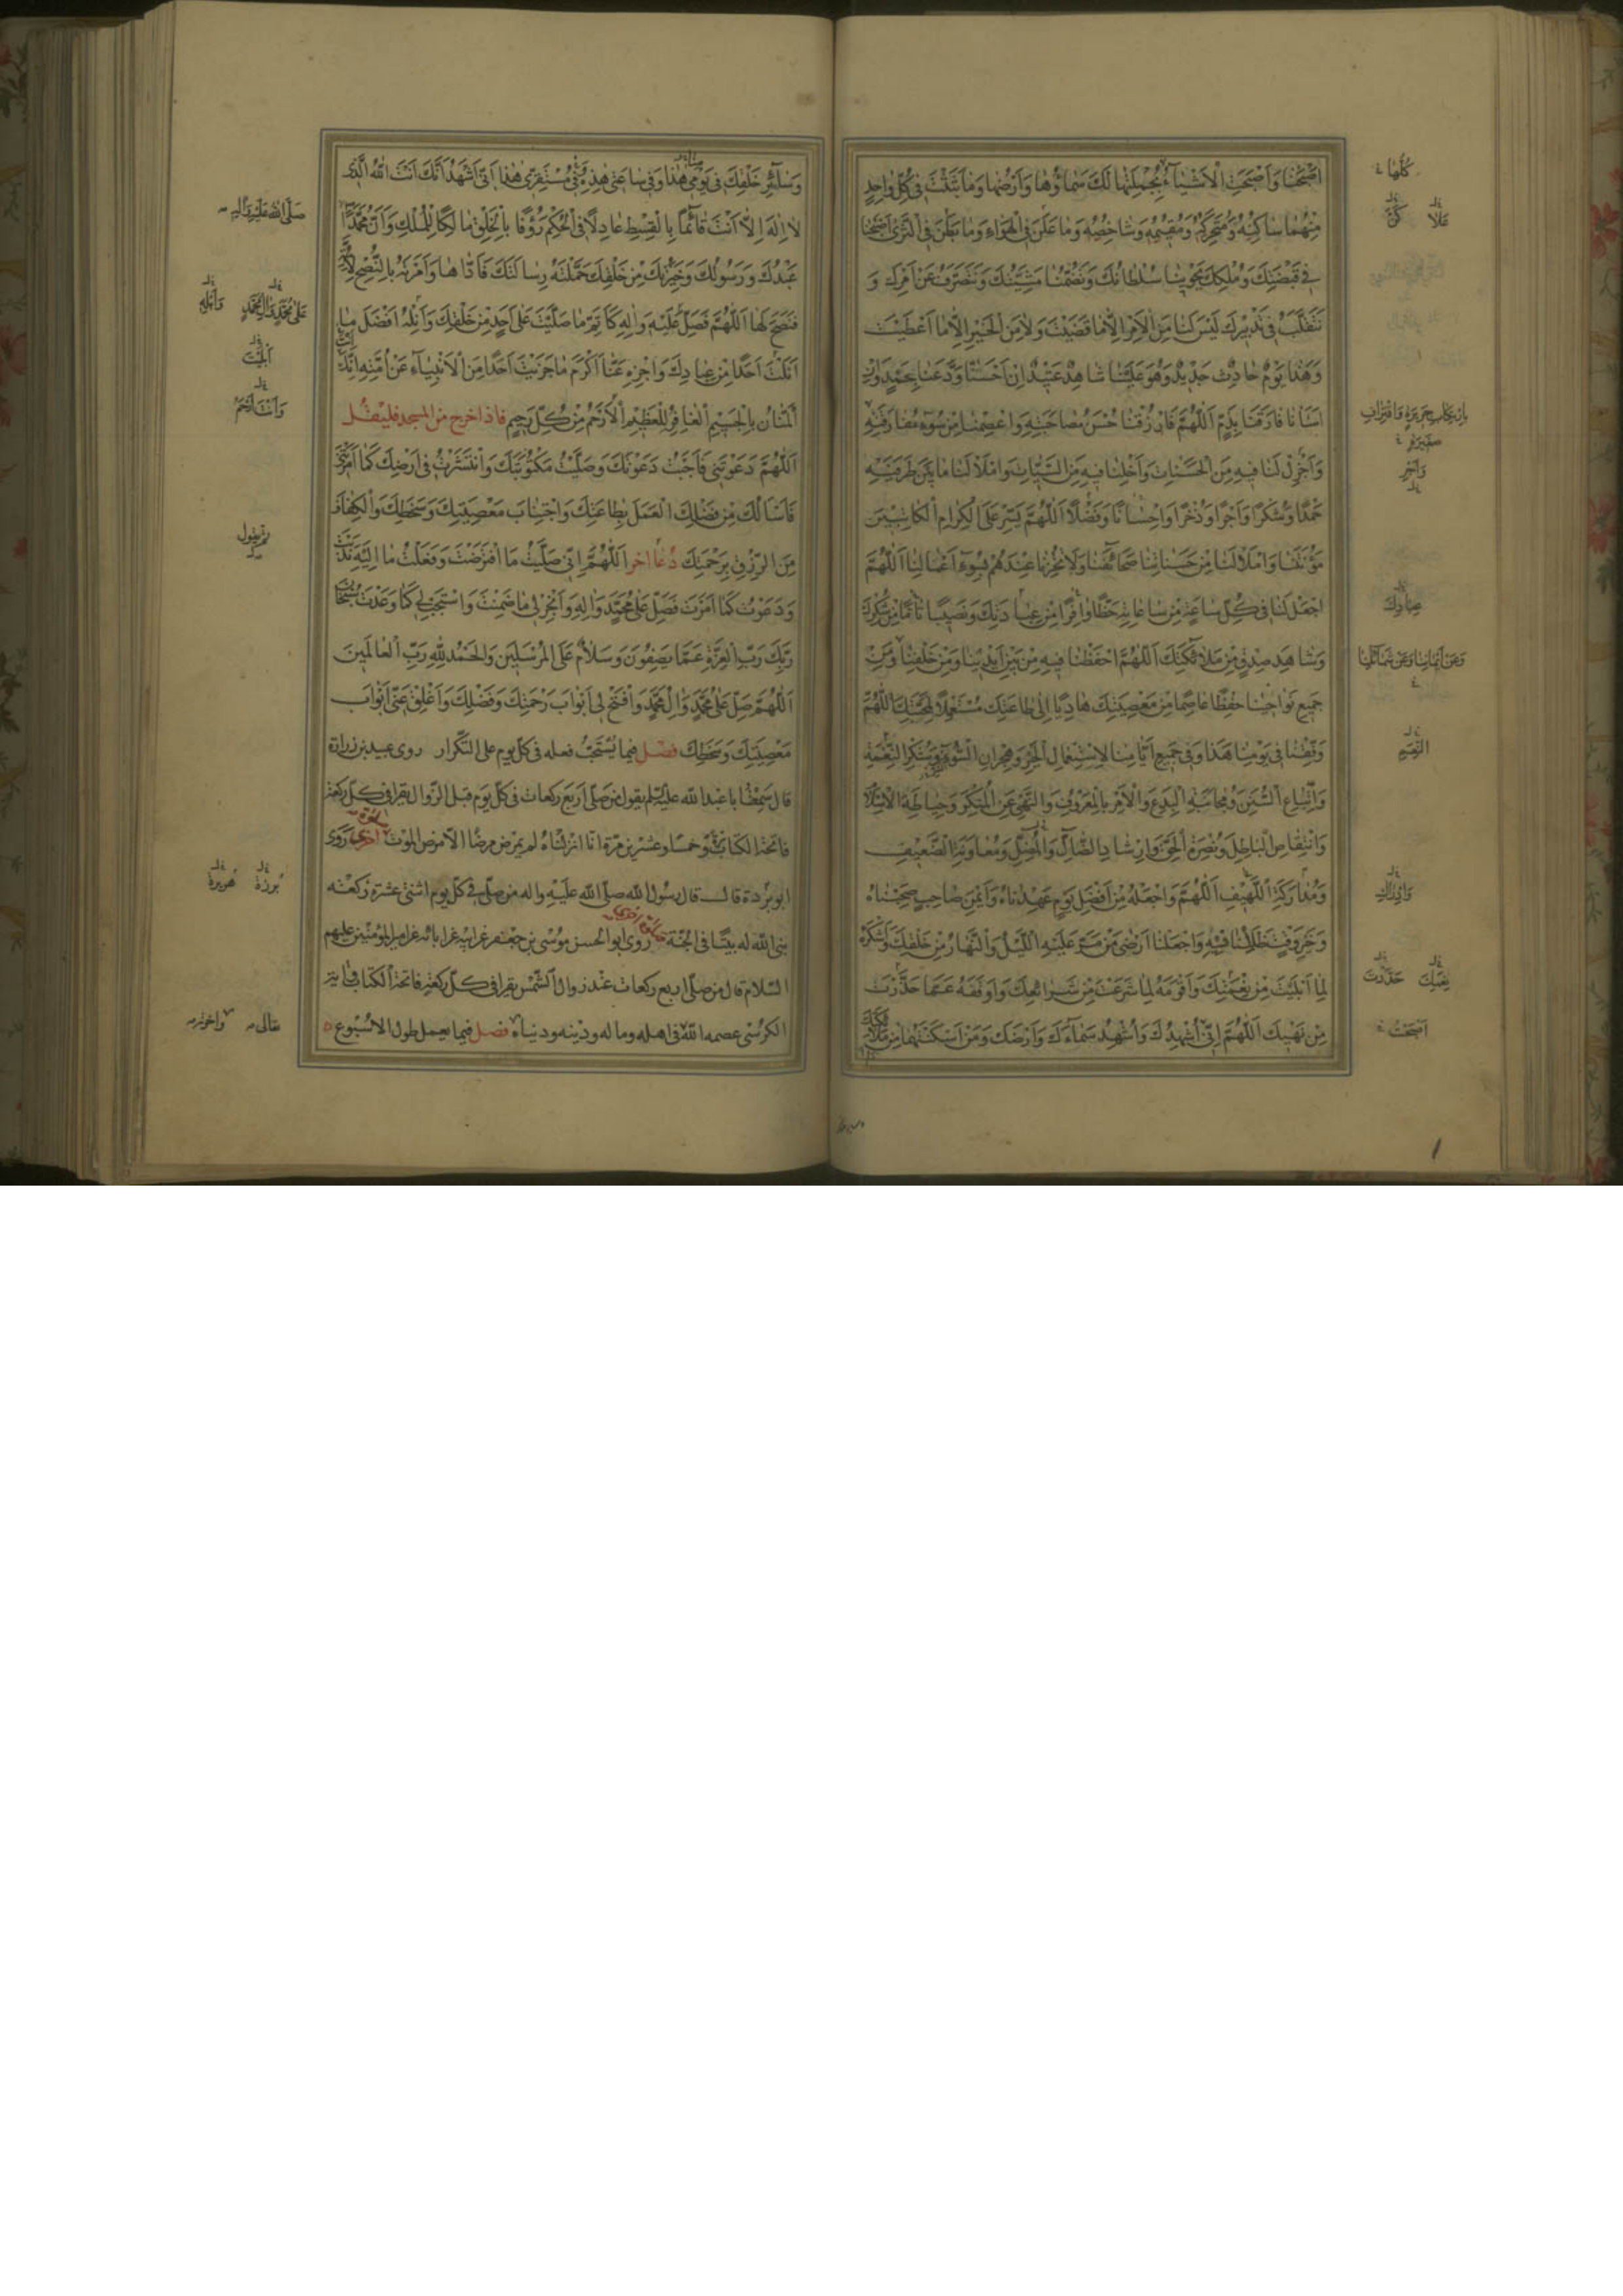 اَصْبَحْنا وَاَصْبَحَتِ الْاَشْيآءُ بِجُمْلَتِها لَكَ سَماؤُها وَاَرْضُها وَما بَثَثْتَ فى كُلِّ واحِدٍ
مِنْهُما ساكِنُهُ وَمُتَحَرِّكُهُ وَمُقيمُهُ وَشاخِصُهُ وَما عَلَنَ فِى الْهَواءِ وَما بَطَنَ فِى الثَّرى اَصْبَحْنا
فى قَبْضَتِكَ وَمُلْكِكَ يَحْوينا سُلْطانُكَ وَتَضُمُّنا مَشِيَّتُكَ وَنَتَصَرَّفُ عَنْ اَمْرِكَ وَ
نَتَقَلَّبُ فى تَدْبيرِكَ لَيْسَ لَنا مِنَ الْاَمْرِ اِلّا ما قَضَيْتَ وَلا مِنَ الْخَيْرِ اِلّا ما اَعْطَيْتَ
وَهٰذا يَوْمٌ حادِثٌ جَديدٌ وَهُوَ عَلَيْنا شاهِدٌ عَتيدٌ اِنْ اَحْسَنّا وَدَّعَنا بِحَمْدٍ وَاِنْ
اَسَأْنا فارَقَنا بِذَمٍّ اَللّٰهُمَّ فَارْزُقْنا حُسْنَ مُصاحَبَتِهِ وَاعْصِمْنا مِنْ سُوءِ مُفارَقَتِهِ
وَاَجْزِلْ لَنا فيهِ مِنَ الْحَسَناتِ وَاَخْلِنا فيهِ مِنَ السَّيِّئاتِ وَامْلَأْ لَنا ما بَيْنَ طَرَفَيْهِ
حَمْدًا وَشُكْرًا وَاَجْرًا وَذُخْرًا وَاِحْسانًا وَفَضْلًا اَللّٰهُمَّ يَسِّرْ عَلَى الْكِرامِ الْكاتِبينَ
مَؤُنَتَنا وَامْلَأْ لَنا مِنْ حَسَناتِنا صَحائِفَنا وَلا تُخْزِنا عِنْدَهُمْ بِسُوءِ اَعْمالِنا اَللّٰهُمَّ
اجْعَلْ لَنا فى كُلِّ ساعَةٍ مِنْ ساعاتِهِ حَظًّا وافِرًا مِنْ عِبادَتِكَ وَنَصيبًا تامًّا مِنْ شُكْرِكَ
وَشاهِدَ صِدْقٍ مِنْ مَلائِكَتِكَ اَللّٰهُمَّ احْفَظْنا فيهِ مِنْ بَيْنِ اَيْدينا وَمِنْ خَلْفِنا وَمِنْ
جَميعِ نَواحينا حِفْظًا عاصِمًا مِنْ مَعْصِيَتِكَ هادِيًا اِلى طاعَتِكَ مُسْتَعْمِلًا لِمَحَبَّتِكَ اَللّٰهُمَّ
وَفِّقْنا فى يَوْمِنا هٰذا وَفى جَميعِ اَيّامِنا لِاسْتِعْمالِ الْخَيْرِ وَهِجْرانِ السُّوءِ وَشُكْرِ النِّعْمَةِ
وَاتِّباعِ السُّنَنِ وَمُجانَبَةِ الْبِدَعِ وَالْاَمْرِ بِالْمَعْرُوفِ وَالنَّهْىِ عَنِ الْمُنْكَرِ وَحِياطَةِ الْاِسْلامِ
وَانْتِقاصِ الْباطِلِ وَنُصْرَةِ الْحَقِّ وَاِرْشادِ الضّالِّ وَمُعاوَنَةِ الضَّعيفِ
اَللّٰهُمَّ وَاجْعَلْهُ مِنْ اَفْضَلِ يَوْمٍ عَهِدْناهُ وَاَيْمَنِ صاحِبٍ صَحِبْناهُ
وَخَيْرِ وَقْتٍ ظَلِلْنا فيهِ وَاجْعَلْنا اَرْضى مَنْ مَرَّ عَلَيْهِ اللَّيْلُ وَالنَّهارُ مِنْ خَلْقِكَ وَاَشْكَرَهُ
لِما اَبْلَيْتَ مِنْ نِعْمَتِكَ وَاَقْوَمَهُ لِما شَرَعْتَ مِنْ شَرائِعِكَ وَاَوْقَفَهُ عَمّا حَذَّرْتَ
مِنْ نَهْيِكَ اَللّٰهُمَّ اِنّى اُشْهِدُكَ وَاُشْهِدُ سَماءَكَ وَاَرْضَكَ وَمَنْ اَسْكَنْتَهُما مِنْ مَلائِكَتِكَ
كُلُّها
عَلا
وَاَجْرِ
عِبادِكَ
وَعَنْ اَيْمانِنا وَعَنْ شَمائِلِنا
النِّعَمِ
نِعَمِكَ حَذَّرْتَ
اَصْبَحَتْ
وَسآئِرَ خَلْقِكَ فى يَوْمى هٰذا وَفى ساعَتى هٰذِهِ وَفى مُسْتَقَرّى هٰذا اَنّى اَشْهَدُ اَنَّكَ اَنْتَ اللّٰهُ الَّذى
لا اِلٰهَ اِلّا اَنْتَ قآئِمًا بِالْقِسْطِ عادِلًا فِى الْحُكْمِ رَؤُفًا بِالْخَلْقِ مالِكًا لِلْمُلْكِ وَاَنَّ مُحَمَّدًا
عَبْدُكَ وَرَسُولُكَ وَخِيَرَتُكَ مِنْ خَلْقِكَ حَمَّلْتَهُ رِسالَتَكَ فَاَدّاها وَاَمَرْتَهُ بِالنُّصْحِ لِاُمَّتِهِ
فَنَصَحَ لَها اَللّٰهُمَّ فَصَلِّ عَلَيْهِ وَالِهِ كَاَتَمِّ ما صَلَّيْتَ عَلى اَحَدٍ مِنْ خَلْقِكَ وَاَنِلْهُ اَفْضَلَ ما
اَنَلْتَ اَحَدًا مِنْ عِبادِكَ وَاجْزِهِ عَنّا اَكْرَمَ ما جَزَيْتَ اَحَدًا مِنَ الْاَنْبِيآءِ عَنْ اُمَّتِهِ اِنَّكَ اَنْتَ
الْمَنّانُ بِالْجَسيمِ الْغافِرُ لِلْعَظيمِ الْاَرْحَمُ مِنْ كُلِّ رَحيمٍ فاذا خرج من المسجد فليقل
اَللّٰهُمَّ دَعَوْتَنى فَاَجَبْتُ دَعْوَتَكَ وَصَلَّيْتُ مَكْتُوبَتَكَ وَانْتَشَرْتُ فى اَرْضِكَ كَما اَمَرْتَنى
فَاَسْاَلُكَ مِنْ فَضْلِكَ الْعَمَلَ بِطاعَتِكَ وَاجْتِنابَ مَعْصِيَتِكَ وَسَخَطِكَ وَالْكَفافَ
مِنَ الرِّزْقِ بِرَحْمَتِكَ دعاء اخر اَللّٰهُمَّ اِنّى صَلَّيْتُ ما افْتَرَضْتَ وَفَعَلْتُ ما اِلَيْهِ نَدَبْتَ
وَدَعَوْتُ كَما اَمَرْتَ فَصَلِّ عَلى مُحَمَّدٍ وَالِهِ وَاَنْجِزْ لى ما ضَمِنْتَ وَاسْتَجِبْ لى كَما وَعَدْتَ سُبْحانَ
رَبِّكَ رَبِّ الْعِزَّةِ عَمّا يَصِفُونَ وَسَلامٌ عَلَى الْمُرْسَلينَ وَالْحَمْدُ لِلّٰهِ رَبِّ الْعالَمينَ
اَللّٰهُمَّ صَلِّ عَلى مُحَمَّدٍ وَالِ مُحَمَّدٍ وَافْتَحْ لى اَبْوابَ رَحْمَتِكَ وَفَضْلِكَ وَاَغْلِقْ عَنّى اَبْوابَ
مَعْصِيَتِكَ وَسَخَطِكَ فصل فيما يُسْتَحَبُّ فعله فى كلّ يوم على التّكرار روى عبيد بن زرارة
قال سمعت ابا عبد الله عليه السلم يقول من صلّى اربع ركعات فى كلّ يوم قبل الزّوال يقرا فى كلّ ركعة
فاتحة الكتاب وخمسا وعشرين مرّة انّا انزلناه لم يمرض مرضا الّا مرض الموت صلوة اخرى روى
ابو بردة قال قال رسول الله صلّى الله عليه واله من صلّى فى كلّ يوم اثنتى عشرة ركعة
بنى الله له بيتا فى الجنّة صلوة اخرى روى ابو الحسن موسى بن جعفر عن ابيه عن ابائه عن امير المؤمنين عليهم
السّلام قال من صلّى اربع ركعات عند زوال الشّمس يقرا فى كلّ ركعة فاتحة الكتاب واية
الكرسى عصمه الله فى اهله وماله ودينه ودنياه فصل فيما يعمل طول الاسبوع
صَلَّى اللّٰهُ عَلَيْهِ وَالِهِ
عَلى مُحَمَّدٍ وَالِ مُحَمَّدٍ وَاَنِلْهِ
وَاَنْتَ اَرْحَمُ
ثم يقول
بُرزة هُريرة
تعالى واخرته